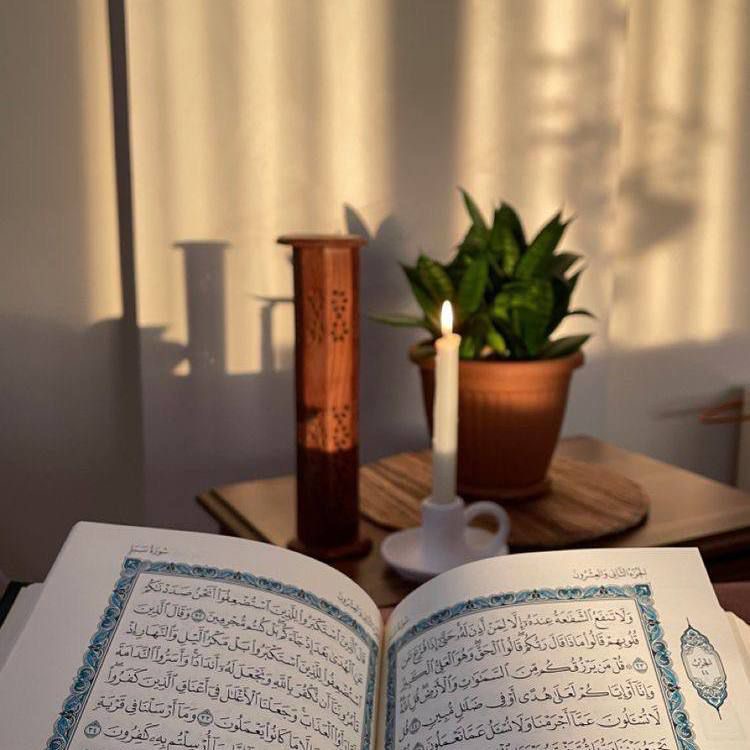 الجُزْءُ الثَّانِي وَالعِشْرُونَ
وَلَا تَنفَعُ ٱلشَّفَٰعَةُ عِندَهُۥٓ إِلَّا لِمَنْ أَذِنَ لَهُۥ حَتَّىٰٓ إِذَا فُزِّعَ عَن
قُلُوبِهِمْ قَالُوا۟ مَاذَا قَالَ رَبُّكُمْ قَالُوا۟ ٱلْحَقَّ وَهُوَ ٱلْعَلِىُّ ٱلْكَبِيرُ
٢٣ ۞ قُلْ مَن يَرْزُقُكُم مِّنَ ٱلسَّمَٰوَٰتِ وَٱلْأَرْضِ قُلِ ٱللَّهُ
وَإِنَّآ أَوْ إِيَّاكُمْ لَعَلَىٰ هُدًى أَوْ فِى ضَلَٰلٍ مُّبِينٍ ٢٤ قُل
لَّا تُسْـَٔلُونَ عَمَّآ أَجْرَمْنَا وَلَا نُسْـَٔلُ عَمَّا تَعْمَلُونَ ٢٥
الحِزْب
سُورَةُ سَبَإٍ
ٱلَّذِينَ ٱسْتَكْبَرُوا۟ لِلَّذِينَ ٱسْتُضْعِفُوٓا۟ أَنَحْنُ صَدَدْنَٰكُمْ
عَنِ ٱلْهُدَىٰ بَعْدَ إِذْ جَآءَكُم بَلْ كُنتُم مُّجْرِمِينَ ٣٢ وَقَالَ ٱلَّذِينَ
ٱسْتُضْعِفُوا۟ لِلَّذِينَ ٱسْتَكْبَرُوا۟ بَلْ مَكْرُ ٱلَّيْلِ وَٱلنَّهَارِ إِذْ
تَأْمُرُونَنَآ أَن نَّكْفُرَ بِٱللَّهِ وَنَجْعَلَ لَهُۥٓ أَندَادًا وَأَسَرُّوا۟ ٱلنَّدَامَةَ
لَمَّا رَأَوُا۟ ٱلْعَذَابَ وَجَعَلْنَا ٱلْأَغْلَٰلَ فِىٓ أَعْنَاقِ ٱلَّذِينَ كَفَرُوا۟
إِلَّا مَا كَانُوا۟ يَعْمَلُونَ ٣٣ وَمَآ أَرْسَلْنَا فِى قَرْيَةٍ
أُرْسِلْتُم بِهِۦ كَٰفِرُونَ ٣٤